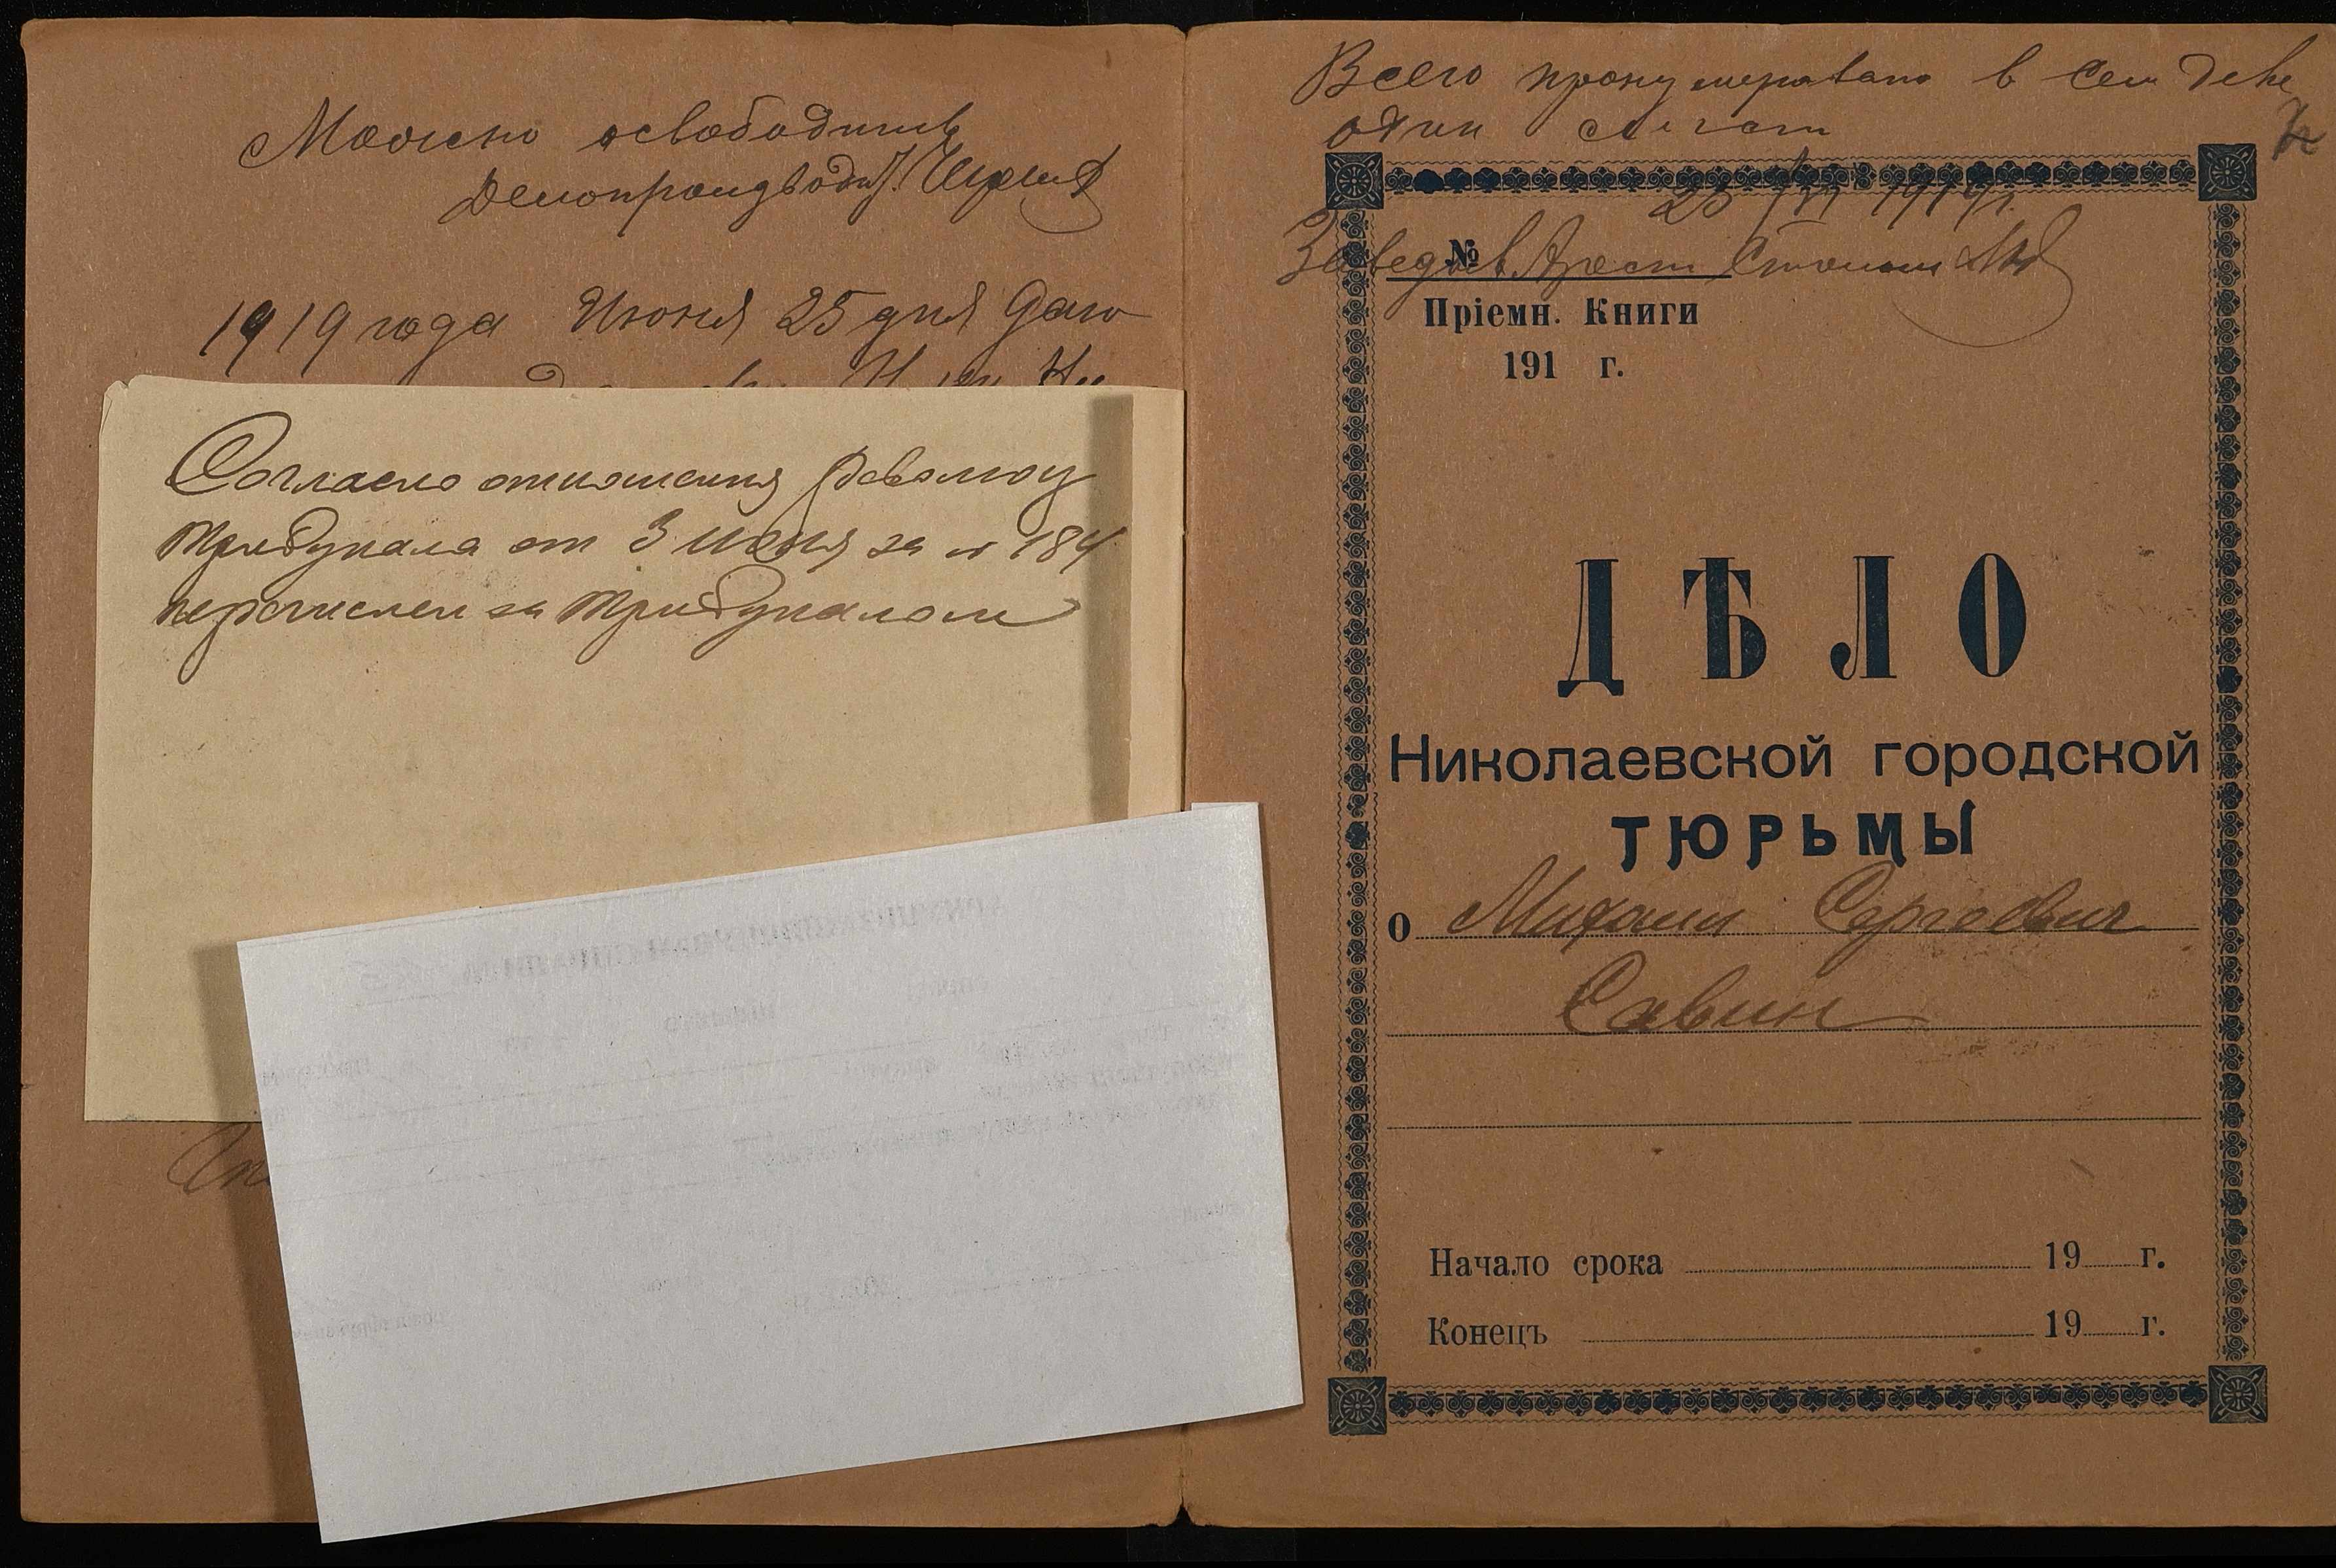 Можно освободить
Делопроизвод
1919 года Июня 25 дня Дано
Согласно отношения Революц
Трибунала от 3 июня за № 184
перечислен за Трибуналом
Всего пронумеровано в сем деле
один лист
25/VI 1919 г.
Заведыв Арест
№
Пріемн. Книги
191 г.
ДѢЛО
Николаевской городской
ТЮРЬМЫ
о Михаил Сергеевич
Савин
Начало срока 19 г.
Конецъ 19 г.